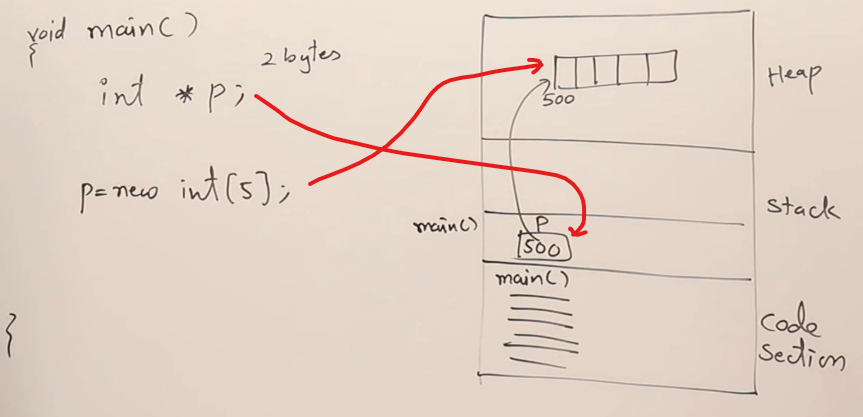 void main()
{
2 bytes
int * p;
p=new int[5];
}
500
Heap
Stack
main()
P
500
main()
Code
Section